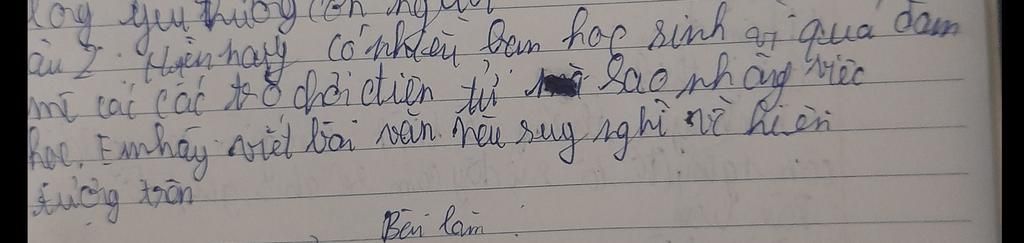 lòng yêu thương con người
âu 2: Hiện hay có nhiều bạn học sinh vì quá đam
mĩ cái các trò chơi điện tử sao nhãng việc
học. Em hãy viết bài văn nêu suy nghĩ về hiện
tượng trên
Bài làm